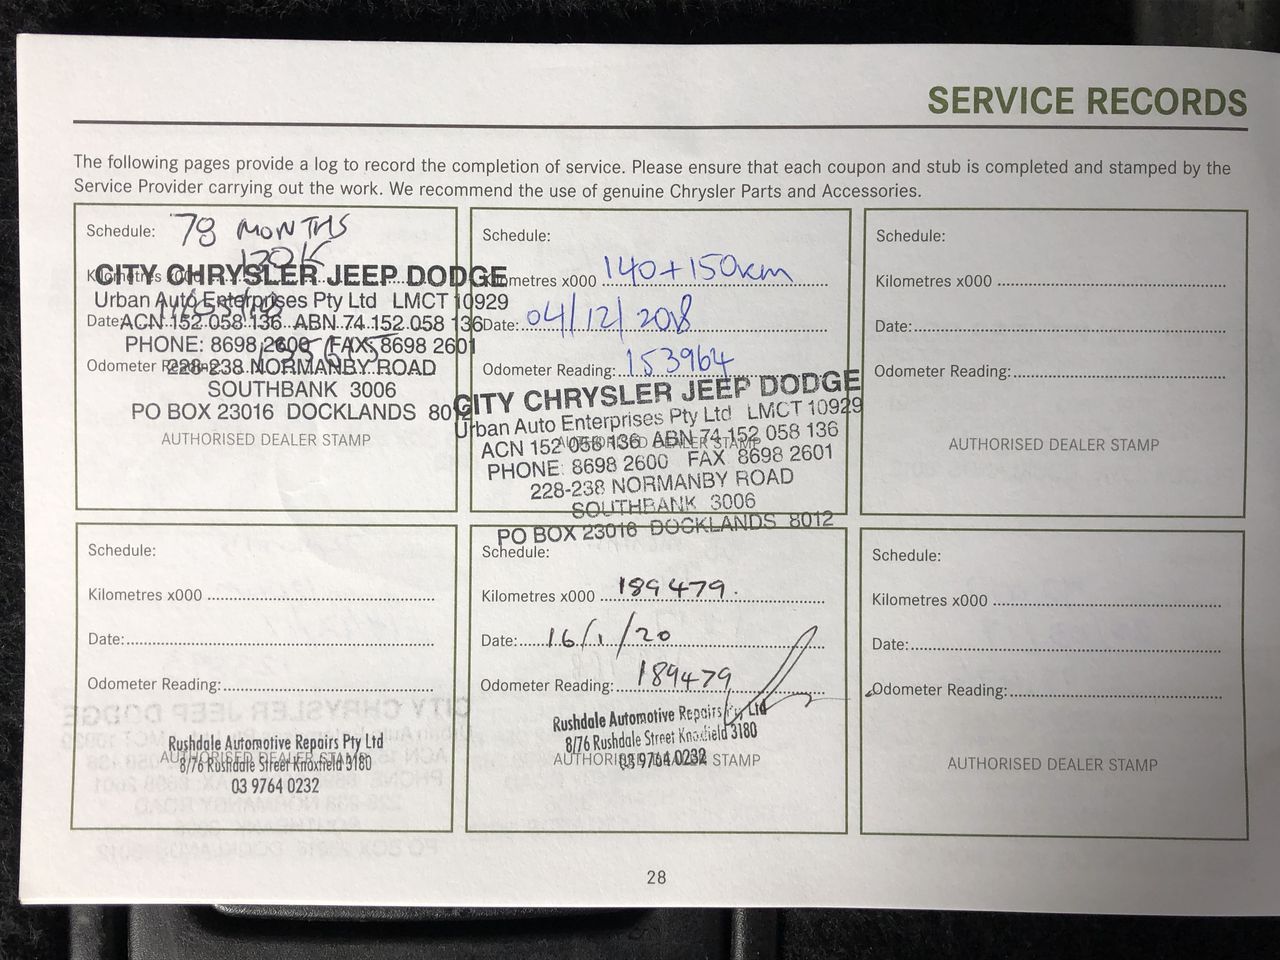 SERVICE RECORDS
The following pages provide a log to record the completion of service. Please ensure that each coupon and stub is completed and stamped by the
Service Provider carrying out the work. We recommend the use of genuine Chrysler Parts and Accessories.
Schedule: 78 MONTHS
Kilometres x000 130K
CITY CHRYSLER JEEP DODGE
Urban Auto Enterprises Pty Ltd LMCT 10929
Date:
ACN 152 058 136 ABN 74 152 058 136
PHONE: 8698 2600 FAX 8698 2601
Odometer Reading:
228-238 NORMANBY ROAD
SOUTHBANK 3006
PO BOX 23016 DOCKLANDS 8012
AUTHORISED DEALER STAMP
Schedule:
Kilometres x000 140+150km
Date: 04/12/2018
Odometer Reading: 153964
CITY CHRYSLER JEEP DODGE
Urban Auto Enterprises Pty Ltd LMCT 10929
ACN 152 058 136 ABN 74 152 058 136
AUTHORISED DEALER STAMP
PHONE: 8698 2600 FAX 8698 2601
228-238 NORMANBY ROAD
SOUTHBANK 3006
PO BOX 23016 DOCKLANDS 8012
Schedule:
Kilometres x000
Date:
Odometer Reading:
AUTHORISED DEALER STAMP
Schedule:
Kilometres x000
Date:
Odometer Reading:
Rushdale Automotive Repairs Pty Ltd
AUTHORISED DEALER STAMP
8/76 Rushdale Street Knoxfield 3180
03 9764 0232
Schedule:
Kilometres x000 189479.
Date: 16/1/20
Odometer Reading: 189479
Rushdale Automotive Repairs Pty Ltd
8/76 Rushdale Street Knoxfield 3180
AUTHORISED DEALER STAMP
03 9764 0232
Schedule:
Kilometres x000
Date:
Odometer Reading:
AUTHORISED DEALER STAMP
28